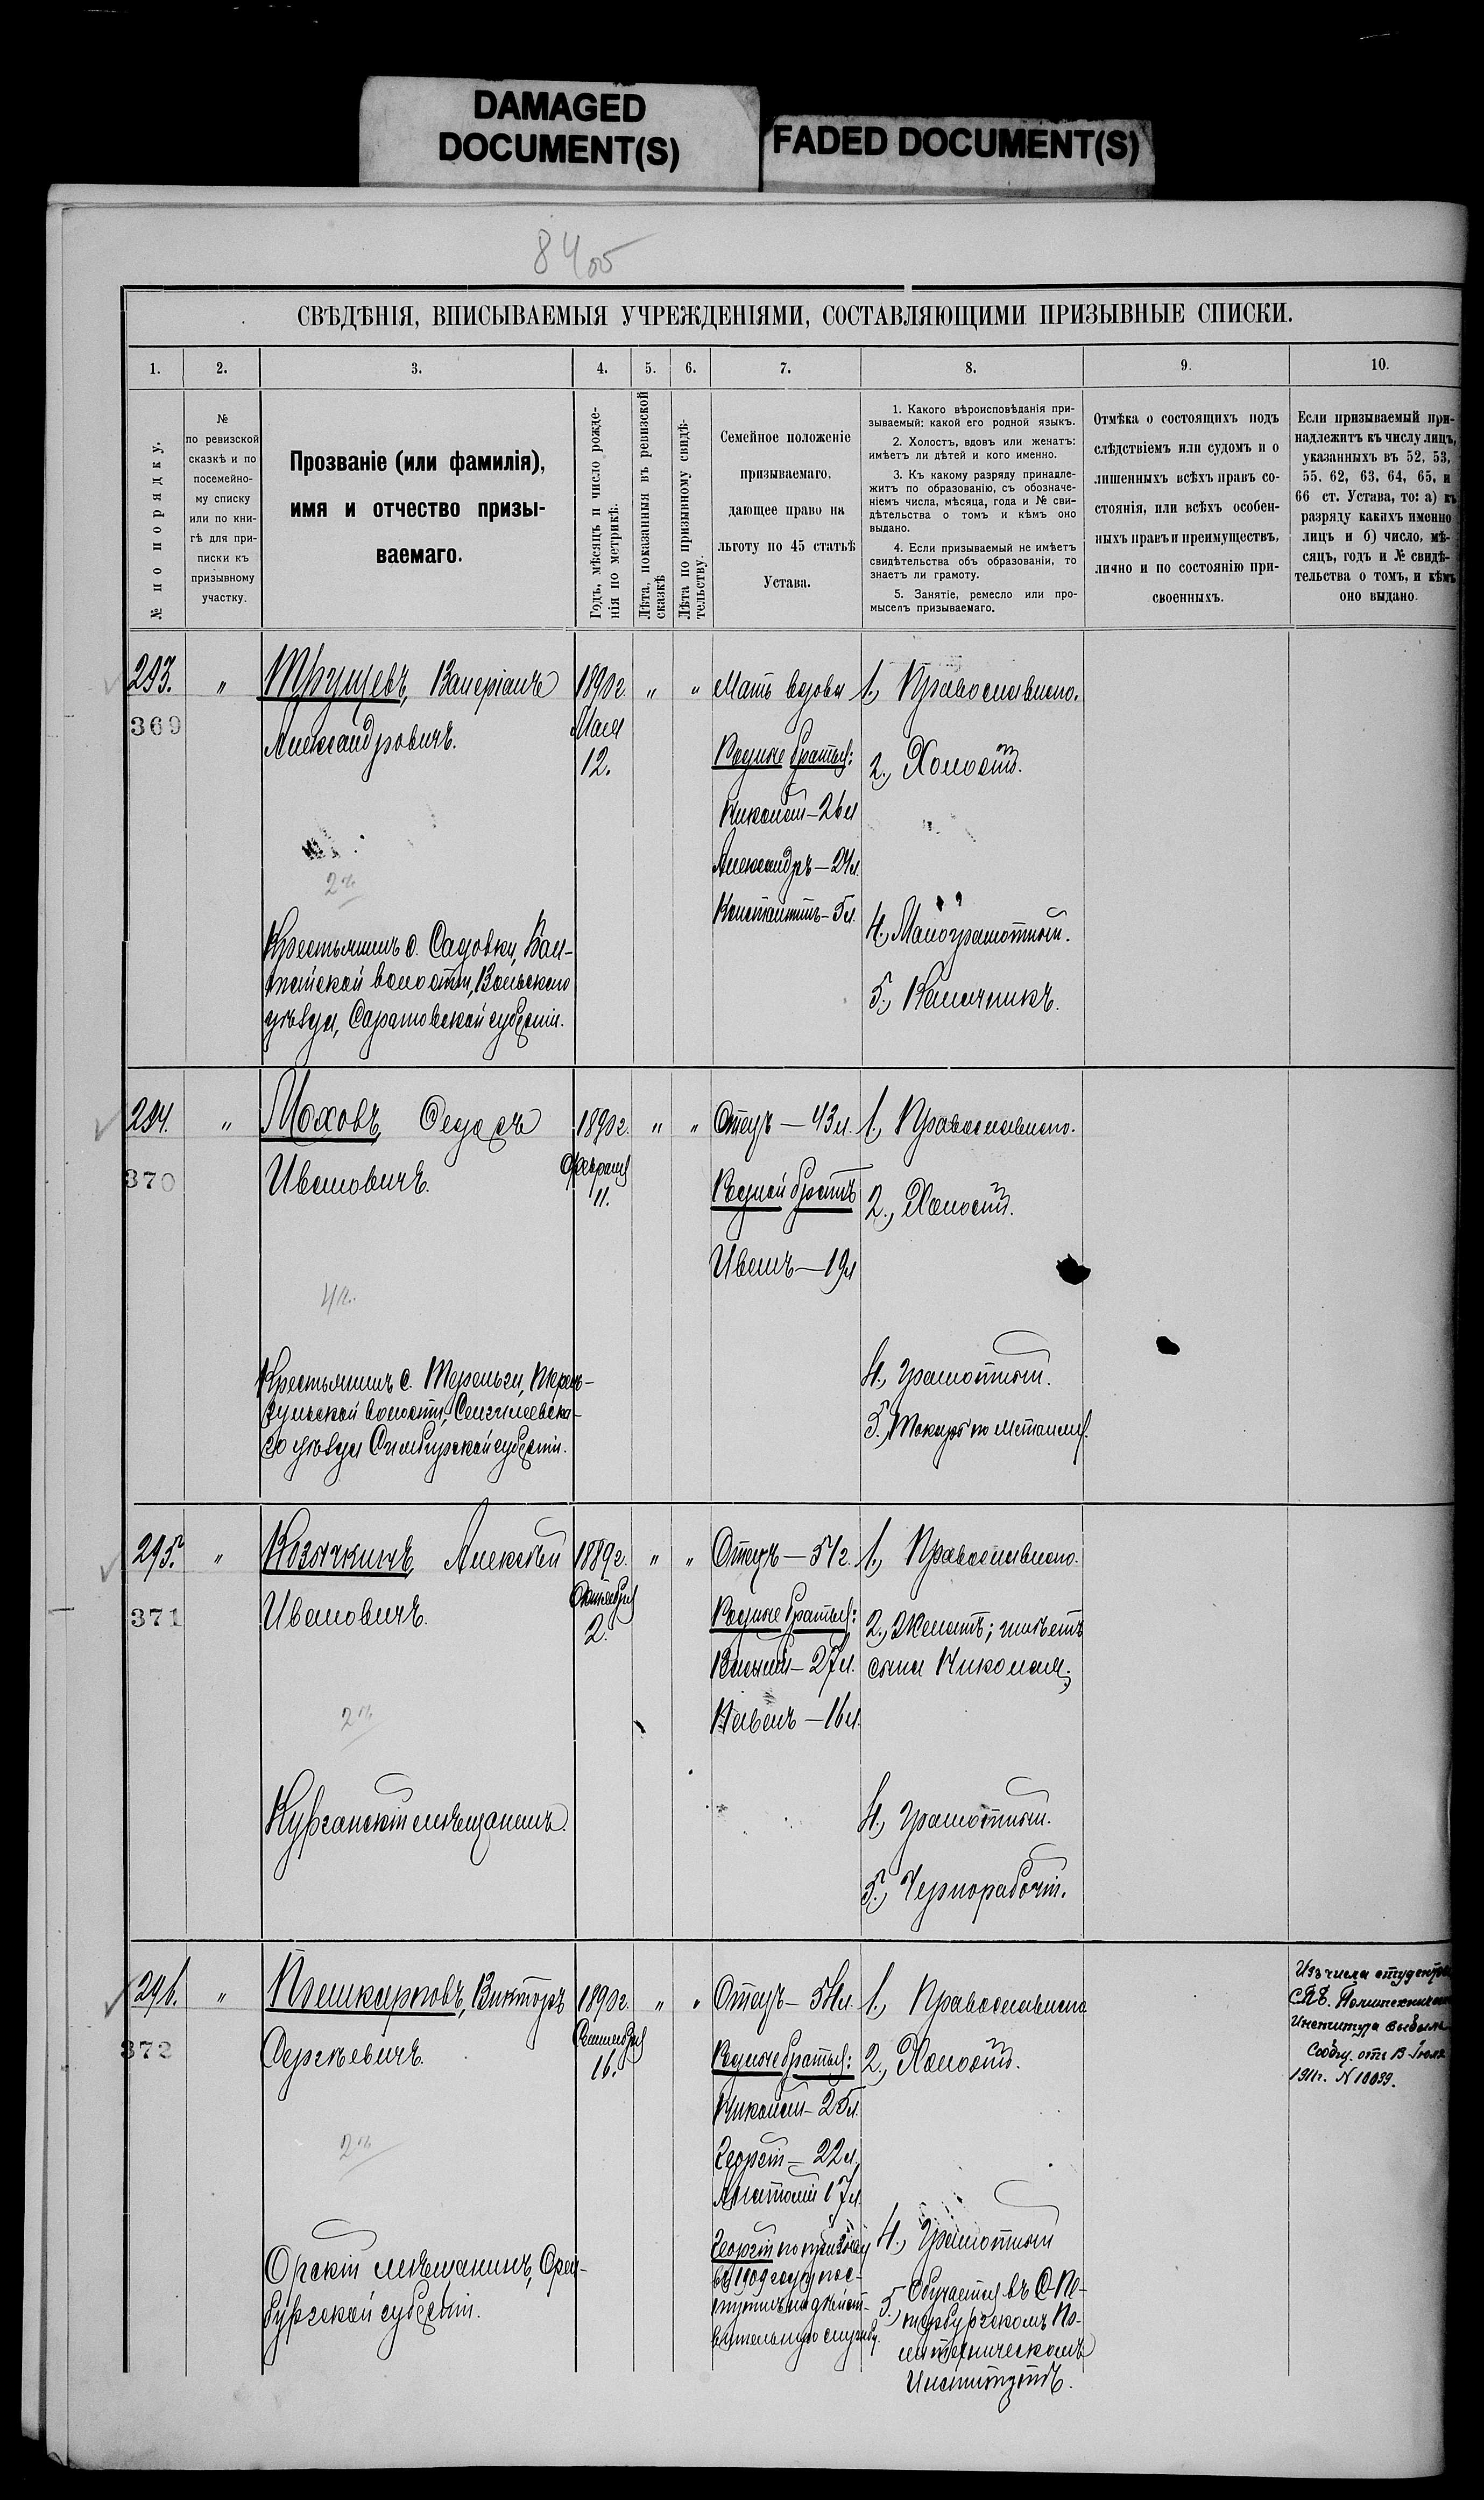 DAMAGED
DOCUMENT(S)
FADED DOCUMENT(S)
СВѢДѢНІЯ, ВПИСЫВАЕМЫЯ УЧРЕЖДЕНІЯМИ, СОСТАВЛЯЮЩИМИ ПРИЗЫВНЫЕ СПИСКИ.
1. 2. 3. 4. 5. 6. 7. 8. 9. 10.
№ по порядку.
№
по ревизской
сказкѣ и по
посемейно-
му списку
или по кни-
гѣ для при-
писки къ
призывному
участку.
Прозваніе (или фамилія),
имя и отчество призы-
ваемаго.
Годъ, мѣсяцъ и число рожде-
нія по метрикѣ.
Лѣта, показанныя въ ревизской
сказкѣ
Лѣта по призывному свидѣ-
тельству.
Семейное положеніе
призываемаго,
дающее право на
льготу по 45 статьѣ
Устава.
1. Какого вѣроисповѣданія при-
зываемый: какой его родной языкъ.
2. Холостъ, вдовъ или женатъ:
имѣетъ ли дѣтей и кого именно.
3. Къ какому разряду принадле-
житъ по образованію, съ обозначе-
ніемъ числа, мѣсяца, года и № сви-
дѣтельства о томъ и кѣмъ оно
выдано.
4. Если призываемый не имѣетъ
свидѣтельства объ образованіи, то
знаетъ ли грамоту.
5. Занятіе, ремесло или про-
мыселъ призываемаго.
Отмѣка о состоящихъ подъ
слѣдствіемъ или судомъ и о
лишенныхъ всѣхъ правъ со-
стоянія, или всѣхъ особен-
ныхъ правъ и преимуществъ,
лично и по состоянію при-
своенныхъ.
Если призываемый при-
надлежитъ къ числу лицъ,
указанныхъ въ 52, 53,
55, 62, 63, 64, 65, и
66 ст. Устава, то: а) къ
разряду какихъ именно
лицъ и б) число, мѣ-
сяцъ, годъ и № свидѣ-
тельства о томъ, и кѣмъ
оно выдано.
293.
369
"
Трущевъ, Валеріанъ
Александровичъ.
Крестьянинъ с. Садовки,
волости, Вольскаго
уѣзда, Саратовской губерніи.
1890 г.
Мая
12.
" "
Мать вдова
Родные братья:
Николай – 26 л
Александръ – 24 л.
Константинъ – 5 л.
1., Православнаго.
2., Холостъ.
4., Малограмотный.
5.,
294.
370
"
Моховъ, Федоръ
Ивановичъ.
Крестьянинъ с. Тереньги,
волости, Сенгилеевска-
го уѣзда Симбирской губерніи.
1890 г.
Февраля
11.
" "
Отецъ – 43 л.
Родной братъ
Иванъ – 19 л
1., Православнаго.
2., Холостъ.
4., Грамотный.
5., Токарь по металлу.
295.
371
"
Козячкинъ, Алексѣй
Ивановичъ.
Курганскій мѣщанинъ.
1889 г.
Октября
2.
" "
Отецъ – 54 г.
Родные братья:
Василій – 27 л.
Павелъ – 16 л.
1., Православнаго.
2., Женатъ; имѣетъ
сына Николая;
4., Грамотный.
5., Чернорабочій.
296.
372
"
Пошкарповъ, Викторъ
Сергѣевичъ.
Орскій мѣщанинъ, Орен-
бургской губерніи.
1890 г.
Сентября
16.
" "
Отецъ – 54 л.
Родные братья:
Николай – 25 л.
Георгій – 22 л.
Анатолій 17 л.
Георгій по призыву
въ 1909 году пос-
тупилъ на дѣйст-
вительную службу.
1., Православнаго
2., Холостъ.
4., Грамотный
5., Обучается въ С-Пе-
тербургскомъ По-
литехническомъ
Институтѣ.
Изъ числа студентовъ
С.П.Б. Политехническаго
Института выбылъ
Сообщ. отъ 13 Іюля
1911 г. N 10099.